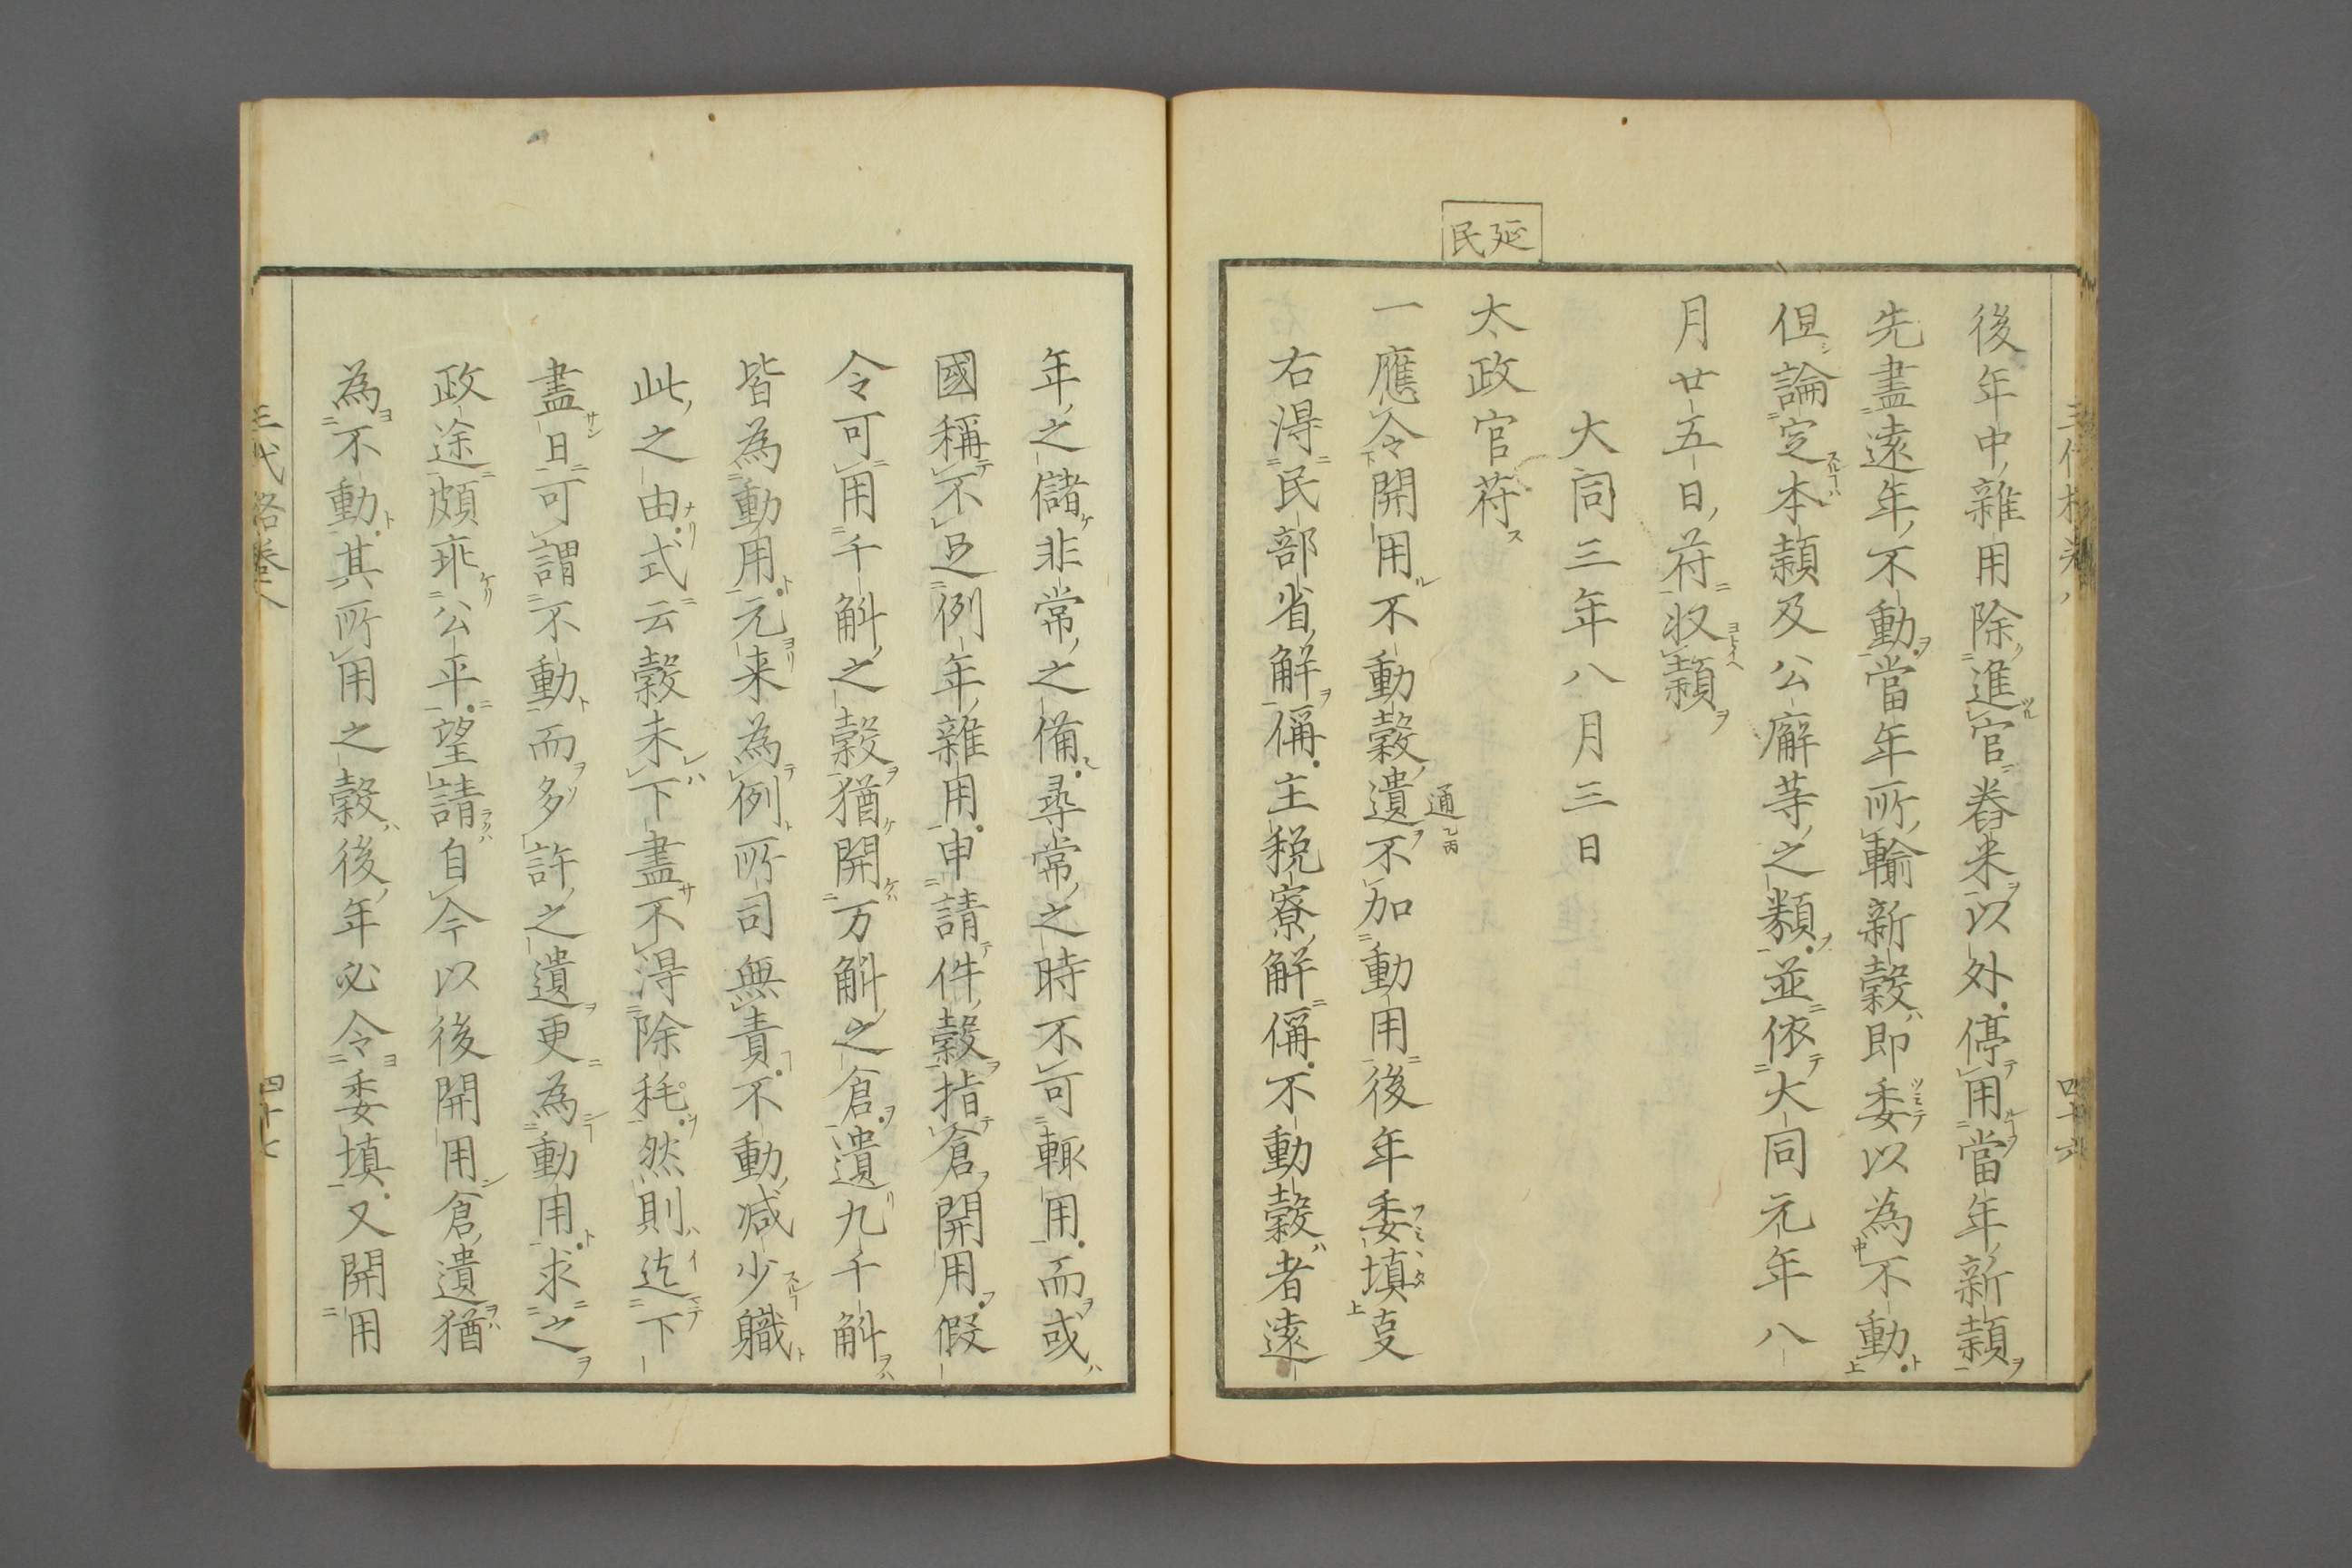 延民
後年中雜用除進官舂米以外停用當年新穎
先盡遠年不動當年所輸新穀即委以為不動
但論定本穎及公廨等之類並依大同元年八
月廿五日苻収穎
大同三年八月三日
太政官苻
一應令開用不動穀遺不加動用後年委填亊
通乙丙
右淂民部省解偁主税寮解偁不動穀者遠
年之儲非常之備尋常之時不可輙用而或
國稱不足例年雜用申請件穀指倉開用假
令可用千斛之穀猶開万斛之倉遺九千斛
皆為動用元来為例所司無責不動减少職
此之由式云穀未下盡不淂除耗然則迄下
盡日可謂不動而多許之遺更為動用求之
政途頗乖公平望請自今以後開用倉遺猶
為不動其所用之穀後年必令委填又開用
三代格卷八
四十七